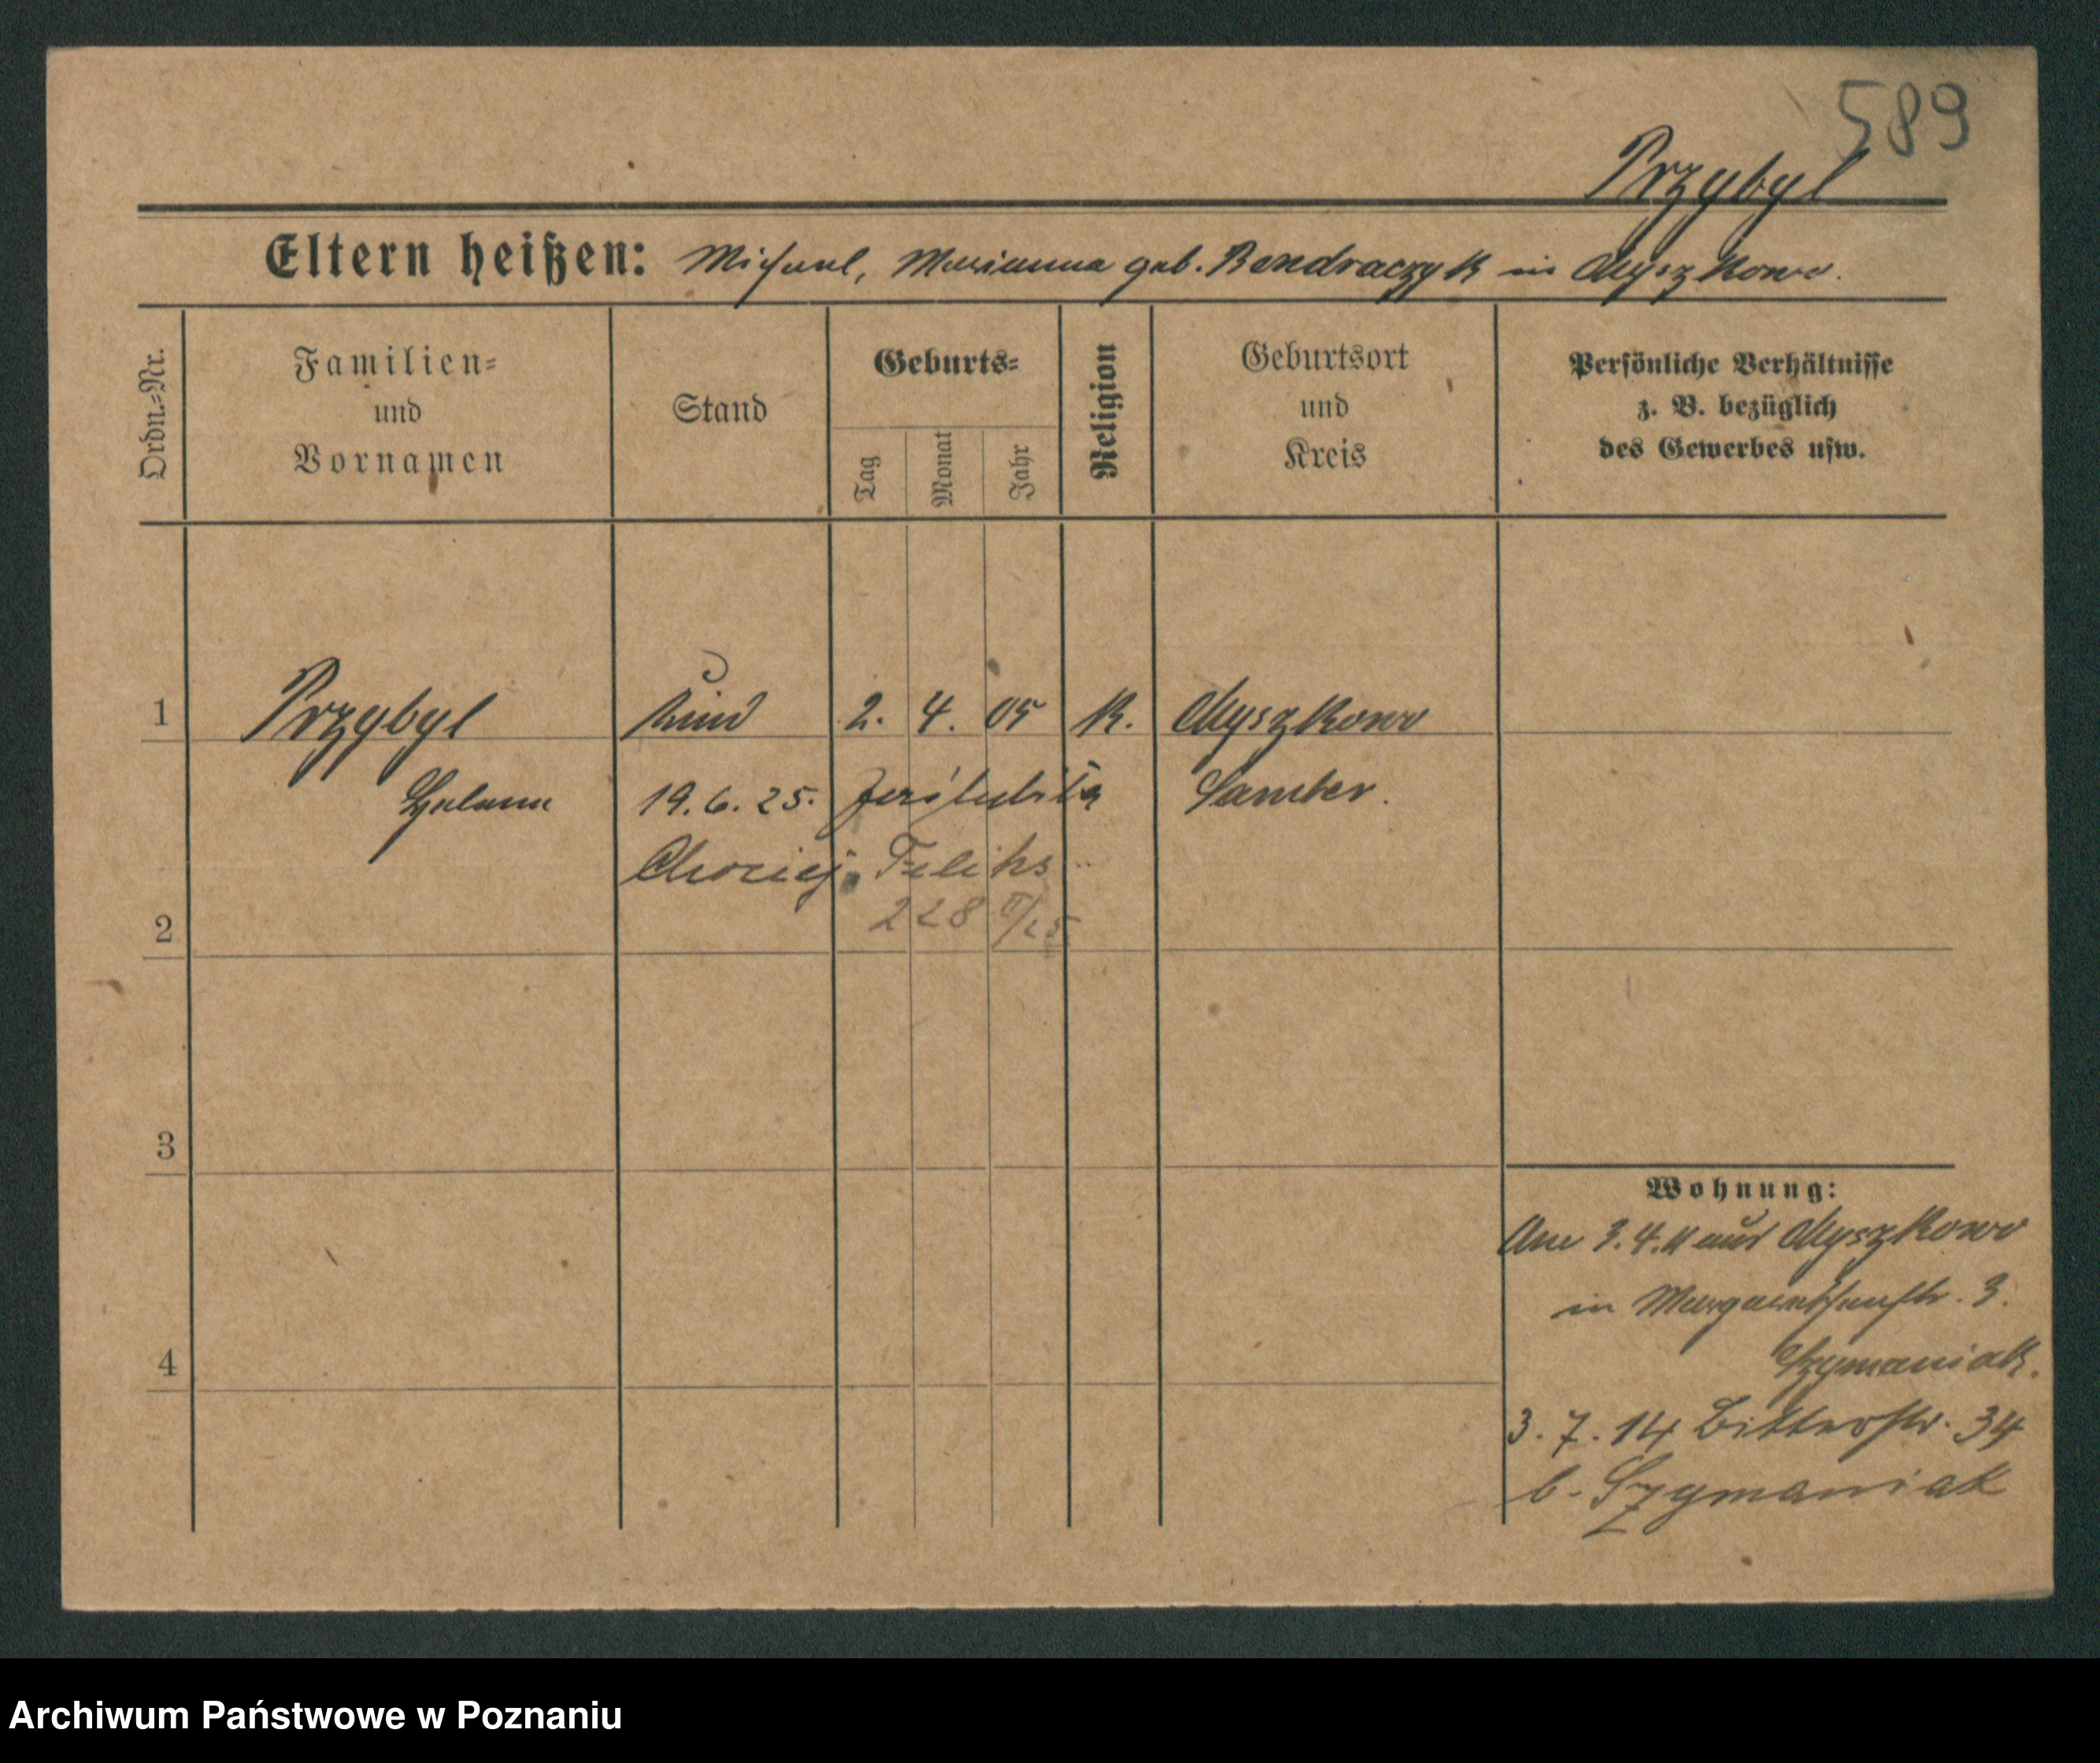 589
Przybyl
Eltern heißen: Michael, Marianna geb. Bendraczyk in Myszkowo.
Ordn.=Nr.
Familien=
und
Vornamen
Stand
Geburts=
Tag
Monat
Jahr
Religion
Geburtsort
und
Kreis
Persönliche Verhältnisse
z. B. bezüglich
des Gewerbes usw.
1 Przybyl Kind 2. 4. 05 K. Myszkowo
Helena 19. 6. 25. Samter.
Feliks
2 228
3
4
Wohnung:
Am 3. 4. 11 aus Myszkowo
in Margarethenstr. 3.
Szymaniak.
3. 7. 14 Bitterstr. 34
b. Szymaniak
Archiwum Państwowe w Poznaniu